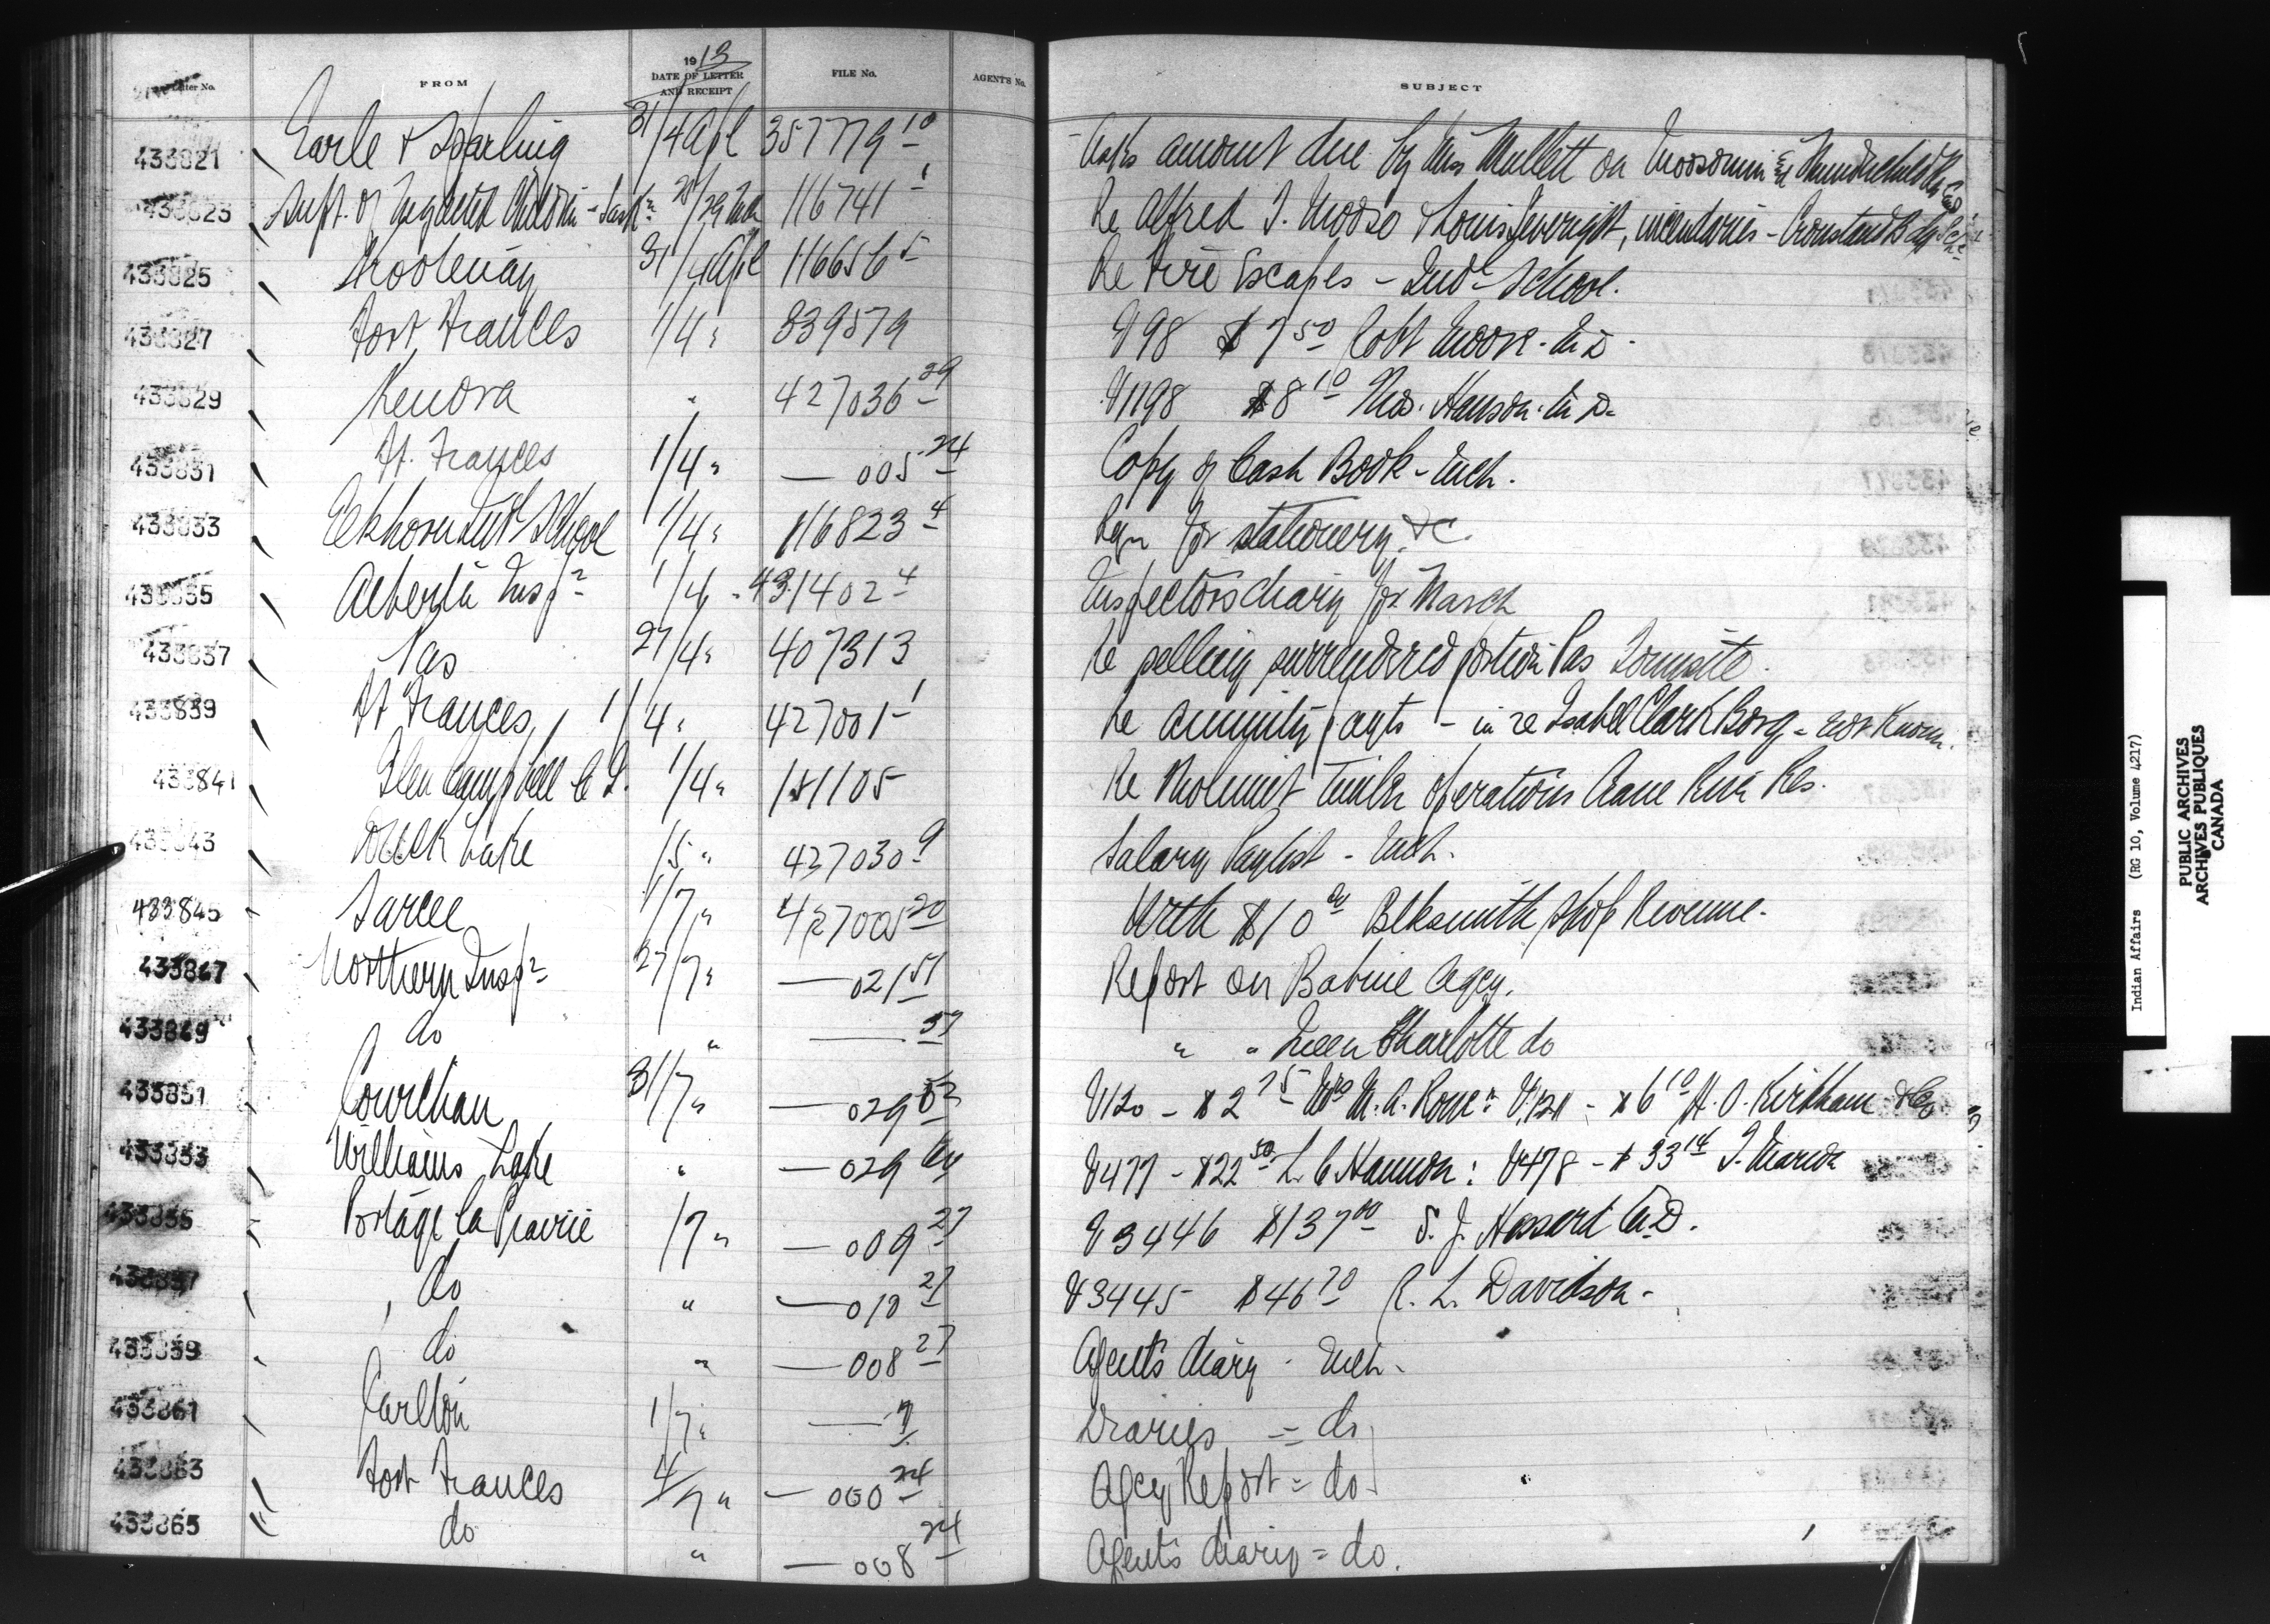 Letter No. FROM 1913 DATE OF LETTER AND RECEIPT FILE No. AGENT'S No. SUBJECT
433821 Earle & Sparling 31/4 Apl 357779 10 Asks amount due by Mrs Mullett on Moosomin &
433823 Supt. of Neglected Children - Sask 116741 1 Re Alfred T. Mooso & Louis, incendiaries - Crowstand Bdg Sch
433825 Kootenay 31/4 Apl 116656 5 Re Fire Escapes - Indl School.
433827 Fort Frances 1/4 " 339579 V98 $7 50 Robt Moore. M D.
433829 Kenora " 427036 29 V1198 $8 10 Thos. Hanson. M D.
433831 Ft. Frances 1/4 " — 005 24 Copy of Cash Book - Mch.
433833 Elkhorn Indl School 1/4 " 116823 4 Reqn for stationery &c.
433835 Alberta Inspn 1/4 " 431402 4 Inspectors diary for March
433837 Pas 27/4 " 407313 Re selling surrendered portion Pas Townsite.
433839 Ft Frances 1/4 " 427001 1 Re annuity payts - in re Isabel Clark Borg - not known.
433841 Glen Campbell C. T. 1/4 " 151105 Re timber operations Res.
433843 Duck Lake 1/5 " 427030 9 Salary Paylist - Mch.
433845 Sarcee 1/7 " 427005 20 With $10 00 Blksmith Shop Revenue.
433847 Northern Inspn 27/7 " — 021 51 Report on Babine Agcy.
433849 do " — 57 " " Queen Charlotte do
433851 Cowichan 31/7 " — 029 52 V120 - $2 75 Mrs M. A. Rowe: V.121 - $6 10 H. O. Kirkham & Co
433853 Williams Lake " — 029 V477 - $22 50 L. C Hannon: V478 - $33 14
433855 Portage la Prairie 1/7 " — 009 27 V3446 $137 00 S. J. Hassard M.D.
433857 do " — 010 27 V3445 $46 70 R. L. Davidson.
433859 do " — 008 27 Agent's diary - Mch.
433861 Carlton 1/7 " — 7 Diaries = do
433863 Fort Frances 4/7 " — 000 24 Agcy Report = do
433865 do " — 008 24 Agent's diary = do.
Indian Affairs (RG 10, Volume 4217)
PUBLIC ARCHIVES
ARCHIVES PUBLIQUES
CANADA